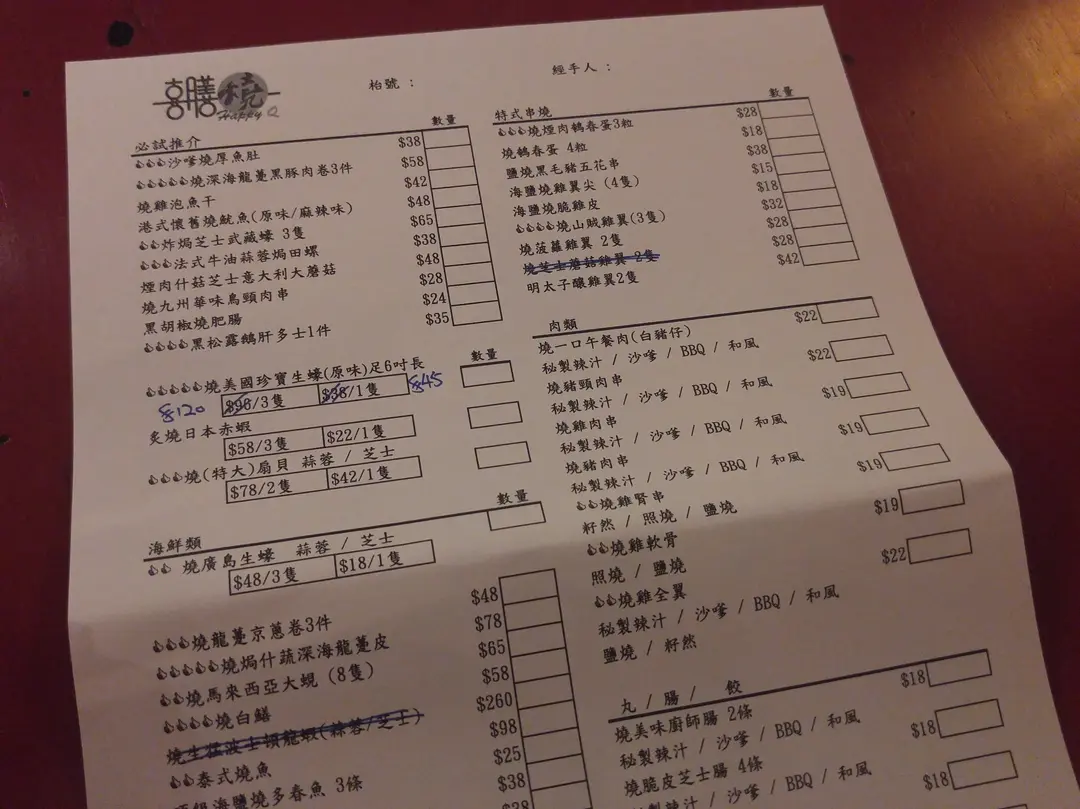 喜膳燒
Happy Q
枱號 :
經手人 :
必試推介 數量
沙嗲燒厚魚肚 $38
燒深海龍躉黑豚肉卷3件 $58
燒雞泡魚干 $42
港式懷舊燒魷魚(原味/麻辣味) $48
炸焗芝士武藏蠔 3隻 $65
法式牛油蒜蓉焗田螺 $38
煙肉什菇芝士意大利大蘑菇 $48
燒九州華味鳥頸肉串 $28
黑胡椒燒肥腸 $24
黑松露鵝肝多士1件 $35
數量
燒美國珍寶生蠔(原味)足6吋長
$120 $98/3隻 $38/1隻 $45
炙燒日本赤蝦
$58/3隻 $22/1隻
燒(特大)扇貝 蒜蓉 / 芝士
$78/2隻 $42/1隻
海鮮類 數量
燒廣島生蠔 蒜蓉 / 芝士
$48/3隻 $18/1隻
燒龍躉京蔥卷3件 $48
燒焗什蔬深海龍躉皮 $78
燒馬來西亞大蜆 (8隻) $65
燒白鱔 $58
燒生猛波士頓龍蝦(蒜蓉/芝士) $260
泰式燒魚 $98
海鹽燒多春魚 3條 $25
$38
特式串燒 數量
燒煙肉鵪春蛋3粒 $28
燒鵪春蛋 4粒 $18
鹽燒黑毛豬五花串 $38
海鹽燒雞翼尖 (4隻) $15
海鹽燒脆雞皮 $18
燒山賊雞翼(3隻) $32
燒菠蘿雞翼 2隻 $28
燒芝士蘑菇雞翼 2隻 $28
明太子釀雞翼2隻 $42
肉類
燒一口午餐肉(白豬仔) $22
秘製辣汁 / 沙嗲 / BBQ / 和風
燒豬頸肉串 $22
秘製辣汁 / 沙嗲 / BBQ / 和風
燒雞肉串 $19
秘製辣汁 / 沙嗲 / BBQ / 和風
燒豬肉串 $19
秘製辣汁 / 沙嗲 / BBQ / 和風
燒雞腎串 $19
籽然 / 照燒 / 鹽燒
燒雞軟骨 $19
照燒 / 鹽燒
燒雞全翼 $22
秘製辣汁 / 沙嗲 / BBQ / 和風
鹽燒 / 籽然
丸 / 腸 / 餃
燒美味廚師腸 2條 $18
秘製辣汁 / 沙嗲 / BBQ / 和風
燒脆皮芝士腸 4條 $18
秘製辣汁 / 沙嗲 / BBQ / 和風
$18